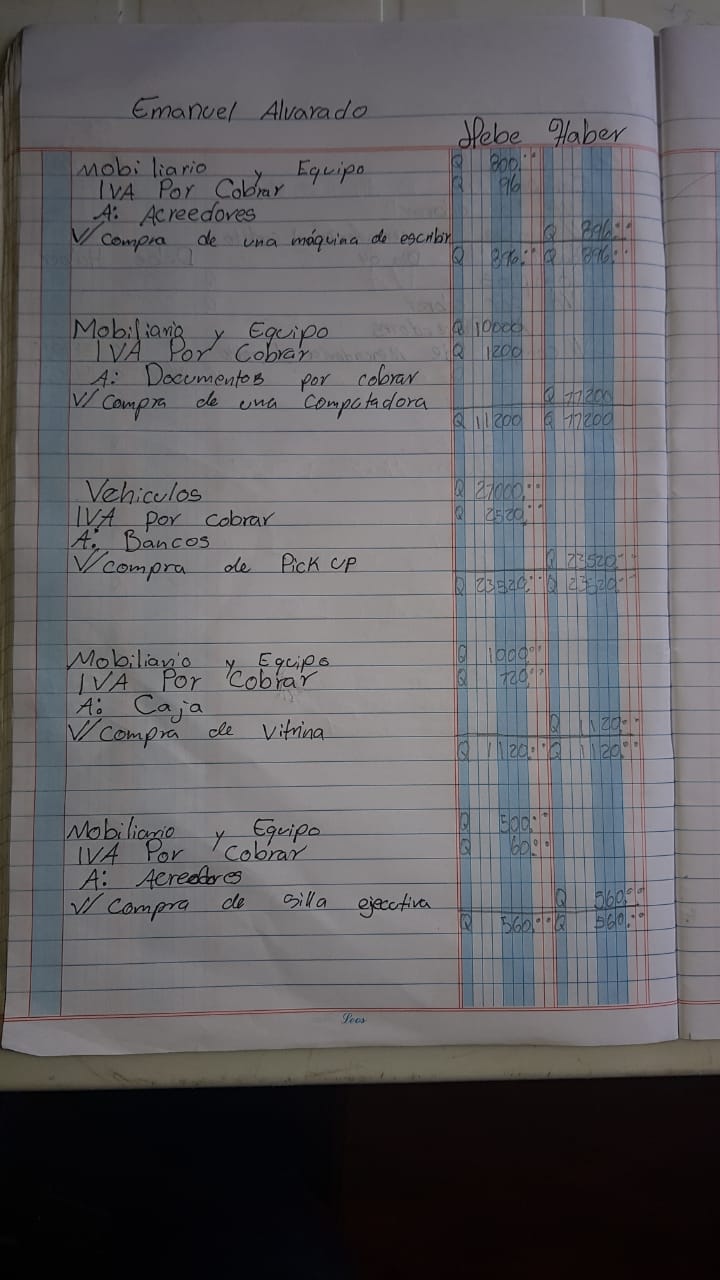 Emanuel Alvarado
Debe Haber
Mobiliario y Equipo Q 800.00
IVA Por Cobrar Q 96
A: Acreedores
V/ Compra de una máquina de escribir Q 896.00
Q 896.00 Q 896.00
Mobiliario y Equipo Q 10000
IVA Por Cobrar Q 1200
A: Documentos por cobrar
V/ Compra de una Computadora Q 11200
Q 11200 Q 11200
Vehiculos Q 21000.00
IVA por cobrar Q 2520.00
A: Bancos
V/ compra de Pick UP Q 23520.00
Q 23520.00 Q 23520.00
Mobiliario y Equipo Q 1000.00
IVA Por Cobrar Q 120.00
A: Caja
V/ Compra de Vitrina Q 1120.00
Q 1120.00 Q 1120.00
Mobiliario y Equipo Q 500.00
IVA Por Cobrar Q 60.00
A: Acreedores
V/ Compra de silla ejecutiva Q 560.00
Q 560.00 Q 560.00